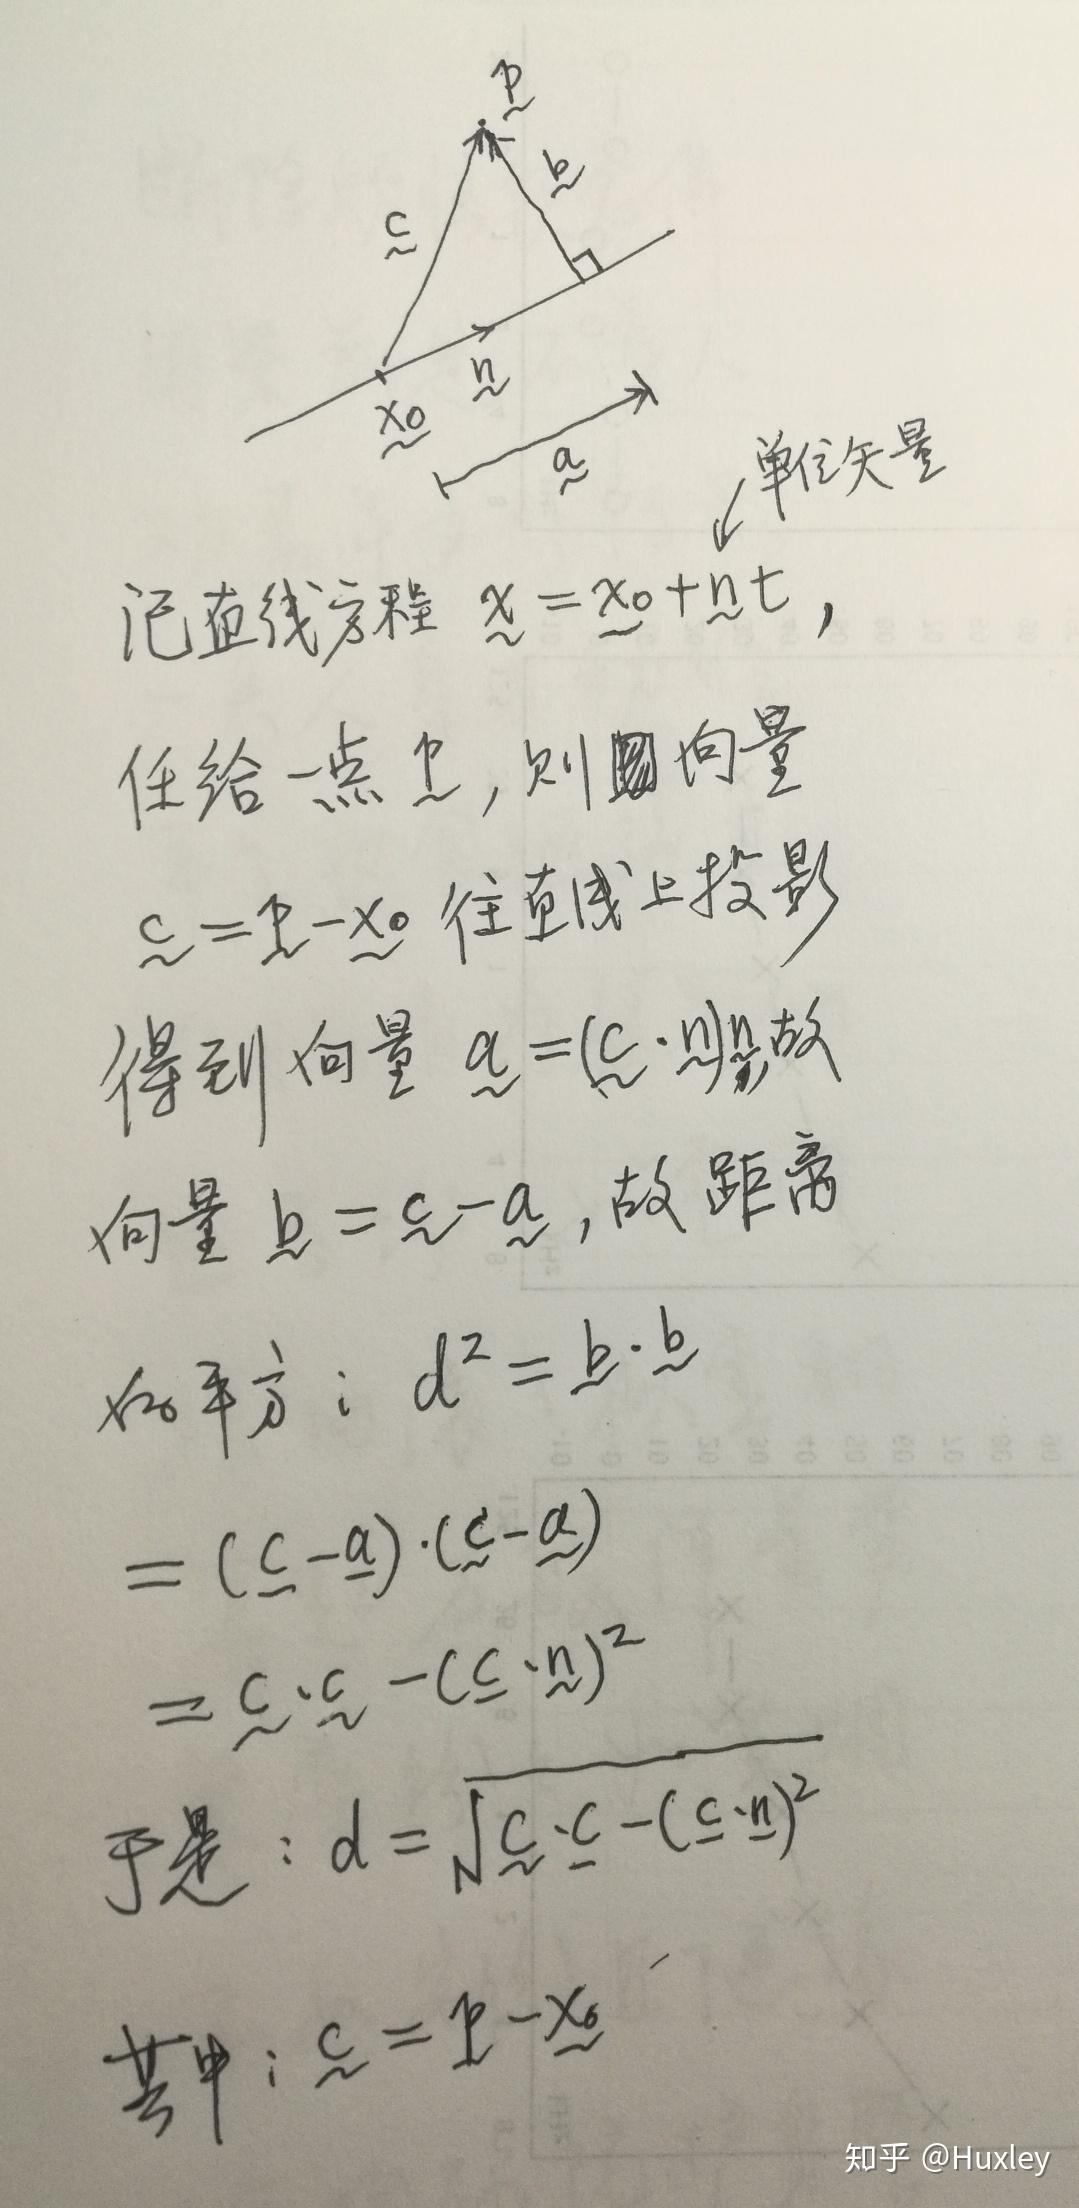 p
b
c
n
x₀
a
单位矢量
记直线方程 x = x₀ + n t ,
任给一点 p , 则 向量
c = p - x₀ 往直线上投影
得到向量 a = (c · n)n, 故
向量 b = c - a , 故距离
的平方: d² = b · b
= (c - a) · (c - a)
= c · c - (c · n)²
于是: d = √(c · c - (c · n)²)
其中: c = p - x₀
知乎 @Huxley